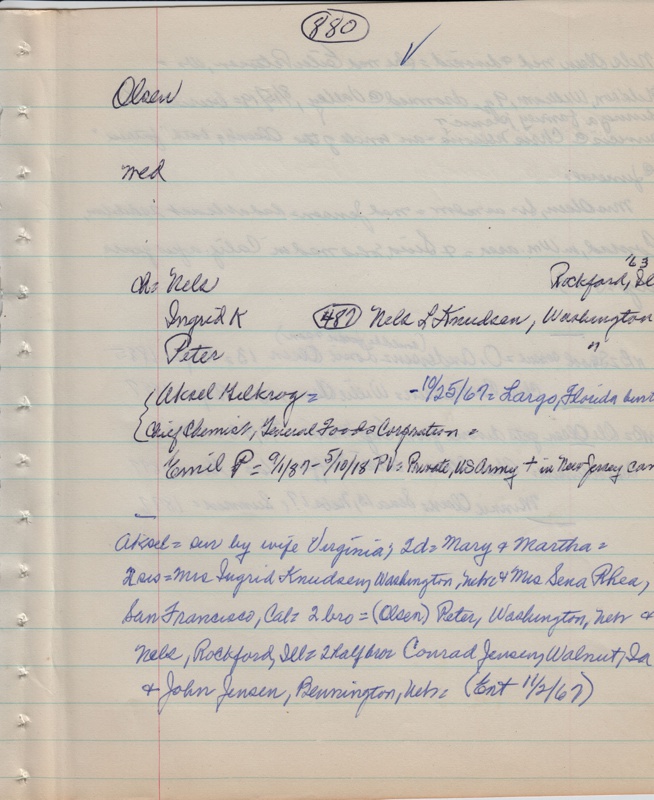 880 ✓
Olsen
med
'63
ch = Nels Rockford, Il
Ingrid K 487 Nels L Knudsen, Washington
Peter "
{Aksel Helkrog = -10/25/67 = Largo, Florida buri
{Chief Chemist, General Foods Corporation =
Emil P = 9/1/87 - 5/10/18 PV = Private, US Army + in New Jersey cam
Aksel = sur by wife Virginia; 2d = Mary & Martha =
2 sis = Mrs Ingrid Knudsen, Washington, Nebr & Mrs Sena Rhea,
San Francisco, Cal = 2 bro = (Olsen) Peter, Washington, Nebr &
Nels, Rockford, Ill = 2 half bros Conrad Jensen, Walnut, Ia
& John Jensen, Bennington, Nebr = (Ent 11/2/67)